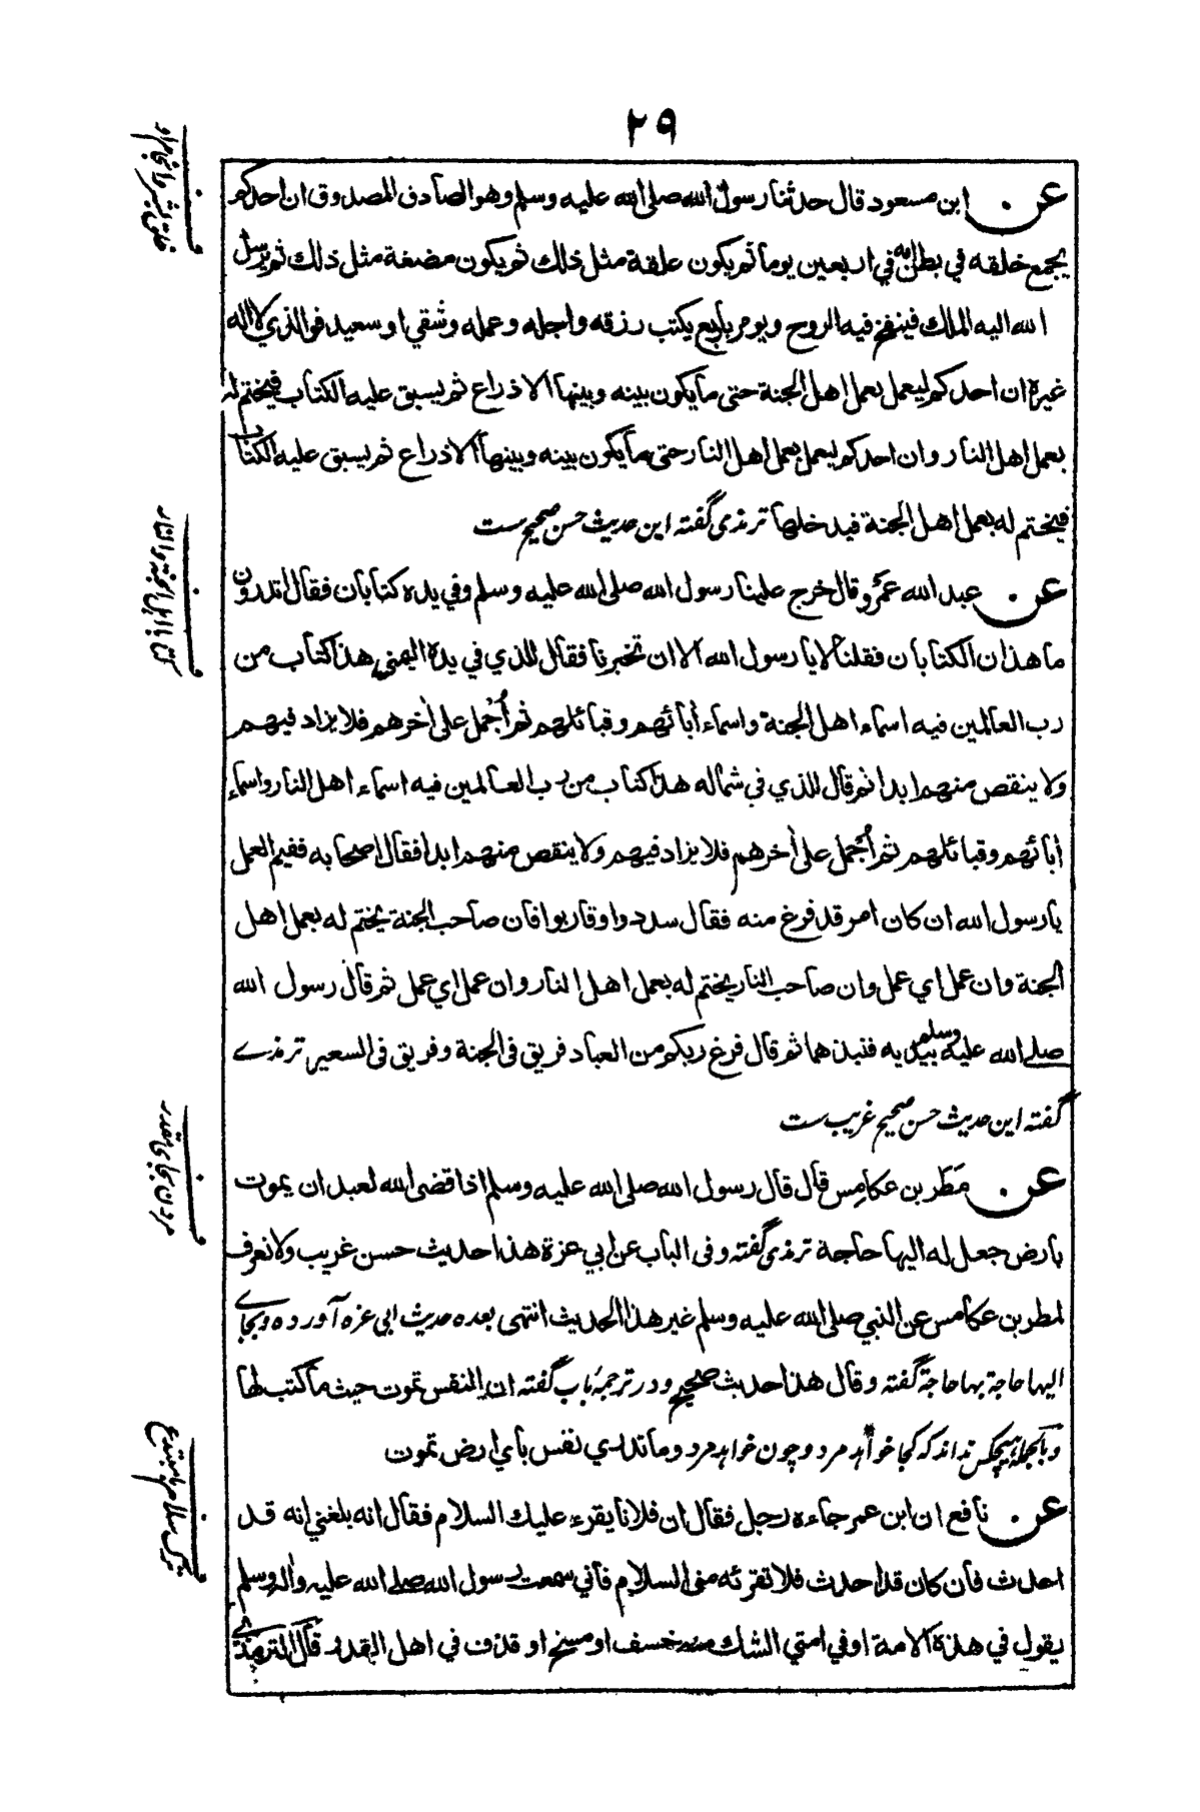 ٢٩
عن ابن مسعود قال حدثنا رسول الله صلى الله عليه وسلم وهو الصادق المصدوق ان احدكم
يجمع خلقه في بطن امه في اربعين يوما ثم يكون علقة مثل ذلك ثم يكون مضغة مثل ذلك ثم يرسل
الله اليه الملك فينفخ فيه الروح ويومر باربع يكتب رزقه واجله وعمله وشقي او سعيد فوالذي لا اله
غيره ان احدكم ليعمل بعمل اهل الجنة حتى ما يكون بينه وبينها الا ذراع ثم يسبق عليه الكتاب فيختم له
بعمل اهل النار وان احدكم ليعمل بعمل اهل النار حتى ما يكون بينه وبينها الا ذراع ثم يسبق عليه الكتاب
فيختم له بعمل اهل الجنة فيدخلها ترمذی گفته این حدیث حسن صحیح ست
عن عبد الله عمرو قال خرج علينا رسول الله صلى الله عليه وسلم وفي يده كتابان فقال اتدرون
ما هذان الكتابان فقلنا لا يا رسول الله الا ان تخبرنا فقال للذي في يده اليمنى هذا كتاب من
رب العالمين فيه اسماء اهل الجنة واسماء أبائهم وقبائلهم ثم أجمل على أخرهم فلا يزاد فيهم
ولا ينقص منهم ابدا ثم قال للذي في شماله هذا كتاب من رب العالمين فيه اسماء اهل النار واسماء
أبائهم وقبائلهم ثم أجمل على أخرهم فلا يزاد فيهم ولا ينقص منهم ابدا فقال اصحابه ففيم العمل
يا رسول الله ان كان امر قد فرغ منه فقال سددوا وقاربوا فان صاحب الجنة يختم له بعمل اهل
الجنة وان عمل اي عمل وان صاحب النار يختم له بعمل اهل النار وان عمل اي عمل ثم قال رسول الله
صلى الله عليه وسلم بيديه فنبذهما ثم قال فرغ ربكم من العباد فريق فى الجنة وفريق فى السعير ترمذے
گفته این حدیث حسن صحیح غریب ست
عن مطر بن عكامس قال قال رسول الله صلى الله عليه وسلم اذا قضى الله لعبد ان يموت
بارض جعل له اليها حاجة ترمذی گفته وفى الباب عن ابي عزة هذا حديث حسن غريب ولا نعرف
لمطر بن عكامس عن النبي صلى الله عليه وسلم غير هذا الحديث انتهى بعده حدیث ابی عزه آورده وبجاے
الیها حاجة بها حاجة گفته وقال هذا حديث صحيح ودر ترجمۀ باب گفته ان النفس تموت حيث ما كتب لها
وبالجمله هیچکس نداند که کجا خواهد مرد وچون خواهد مرد وما تدري نفس باي ارض تموت
عن نافع ان ابن عمر جاءه رجل فقال ان فلانا يقرء عليك السلام فقال انه بلغني انه قد
احدث فان كان قد احدث فلا تقرئه منى السلام فاني سمعت رسول الله صلى الله عليه واله وسلم
يقول في هذه الامة او في امتي الشك منه خسف او مسخ او قذف في اهل القدر قال الترمذي